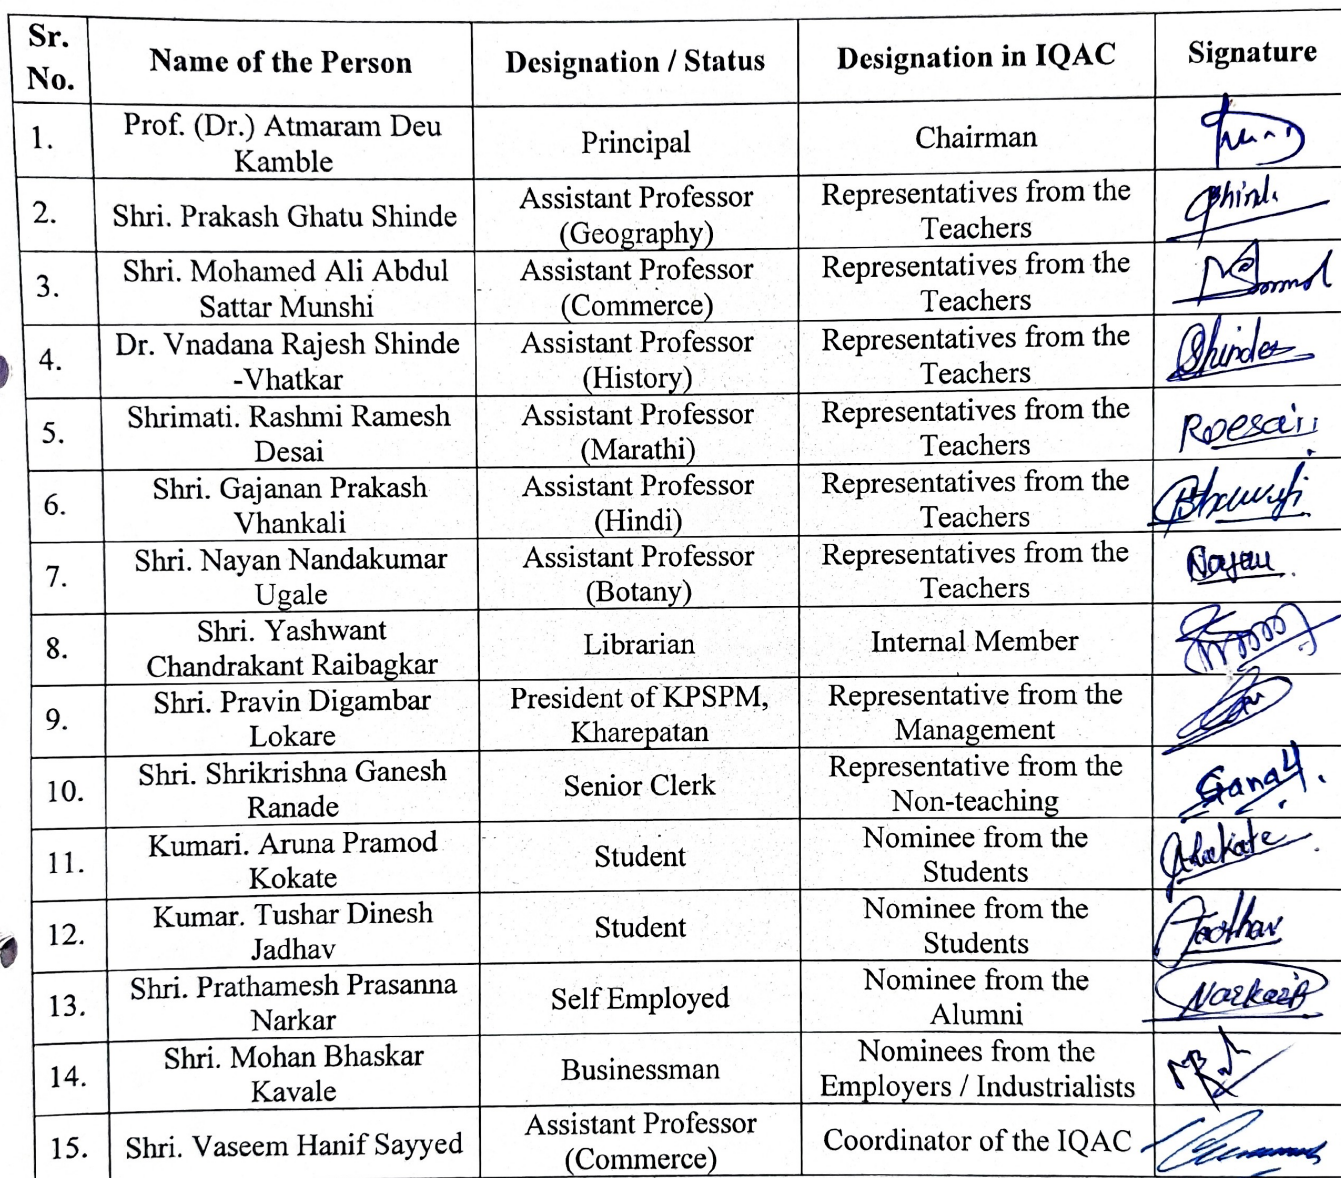 Sr. No. Name of the Person Designation / Status Designation in IQAC Signature
1. Prof. (Dr.) Atmaram Deu Kamble Principal Chairman
2. Shri. Prakash Ghatu Shinde Assistant Professor (Geography) Representatives from the Teachers
3. Shri. Mohamed Ali Abdul Sattar Munshi Assistant Professor (Commerce) Representatives from the Teachers
4. Dr. Vnadana Rajesh Shinde -Vhatkar Assistant Professor (History) Representatives from the Teachers Shinde
5. Shrimati. Rashmi Ramesh Desai Assistant Professor (Marathi) Representatives from the Teachers RDesai
6. Shri. Gajanan Prakash Vhankali Assistant Professor (Hindi) Representatives from the Teachers
7. Shri. Nayan Nandakumar Ugale Assistant Professor (Botany) Representatives from the Teachers Nayan
8. Shri. Yashwant Chandrakant Raibagkar Librarian Internal Member
9. Shri. Pravin Digambar Lokare President of KPSPM, Kharepatan Representative from the Management
10. Shri. Shrikrishna Ganesh Ranade Senior Clerk Representative from the Non-teaching
11. Kumari. Aruna Pramod Kokate Student Nominee from the Students
12. Kumar. Tushar Dinesh Jadhav Student Nominee from the Students Jadhav
13. Shri. Prathamesh Prasanna Narkar Self Employed Nominee from the Alumni
14. Shri. Mohan Bhaskar Kavale Businessman Nominees from the Employers / Industrialists
15. Shri. Vaseem Hanif Sayyed Assistant Professor (Commerce) Coordinator of the IQAC